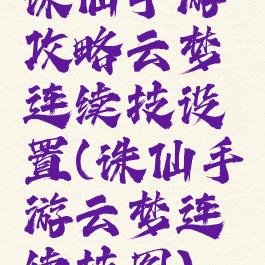 诛仙手游
攻略云梦
连续技设
置(诛仙手
游云梦连
续技图)